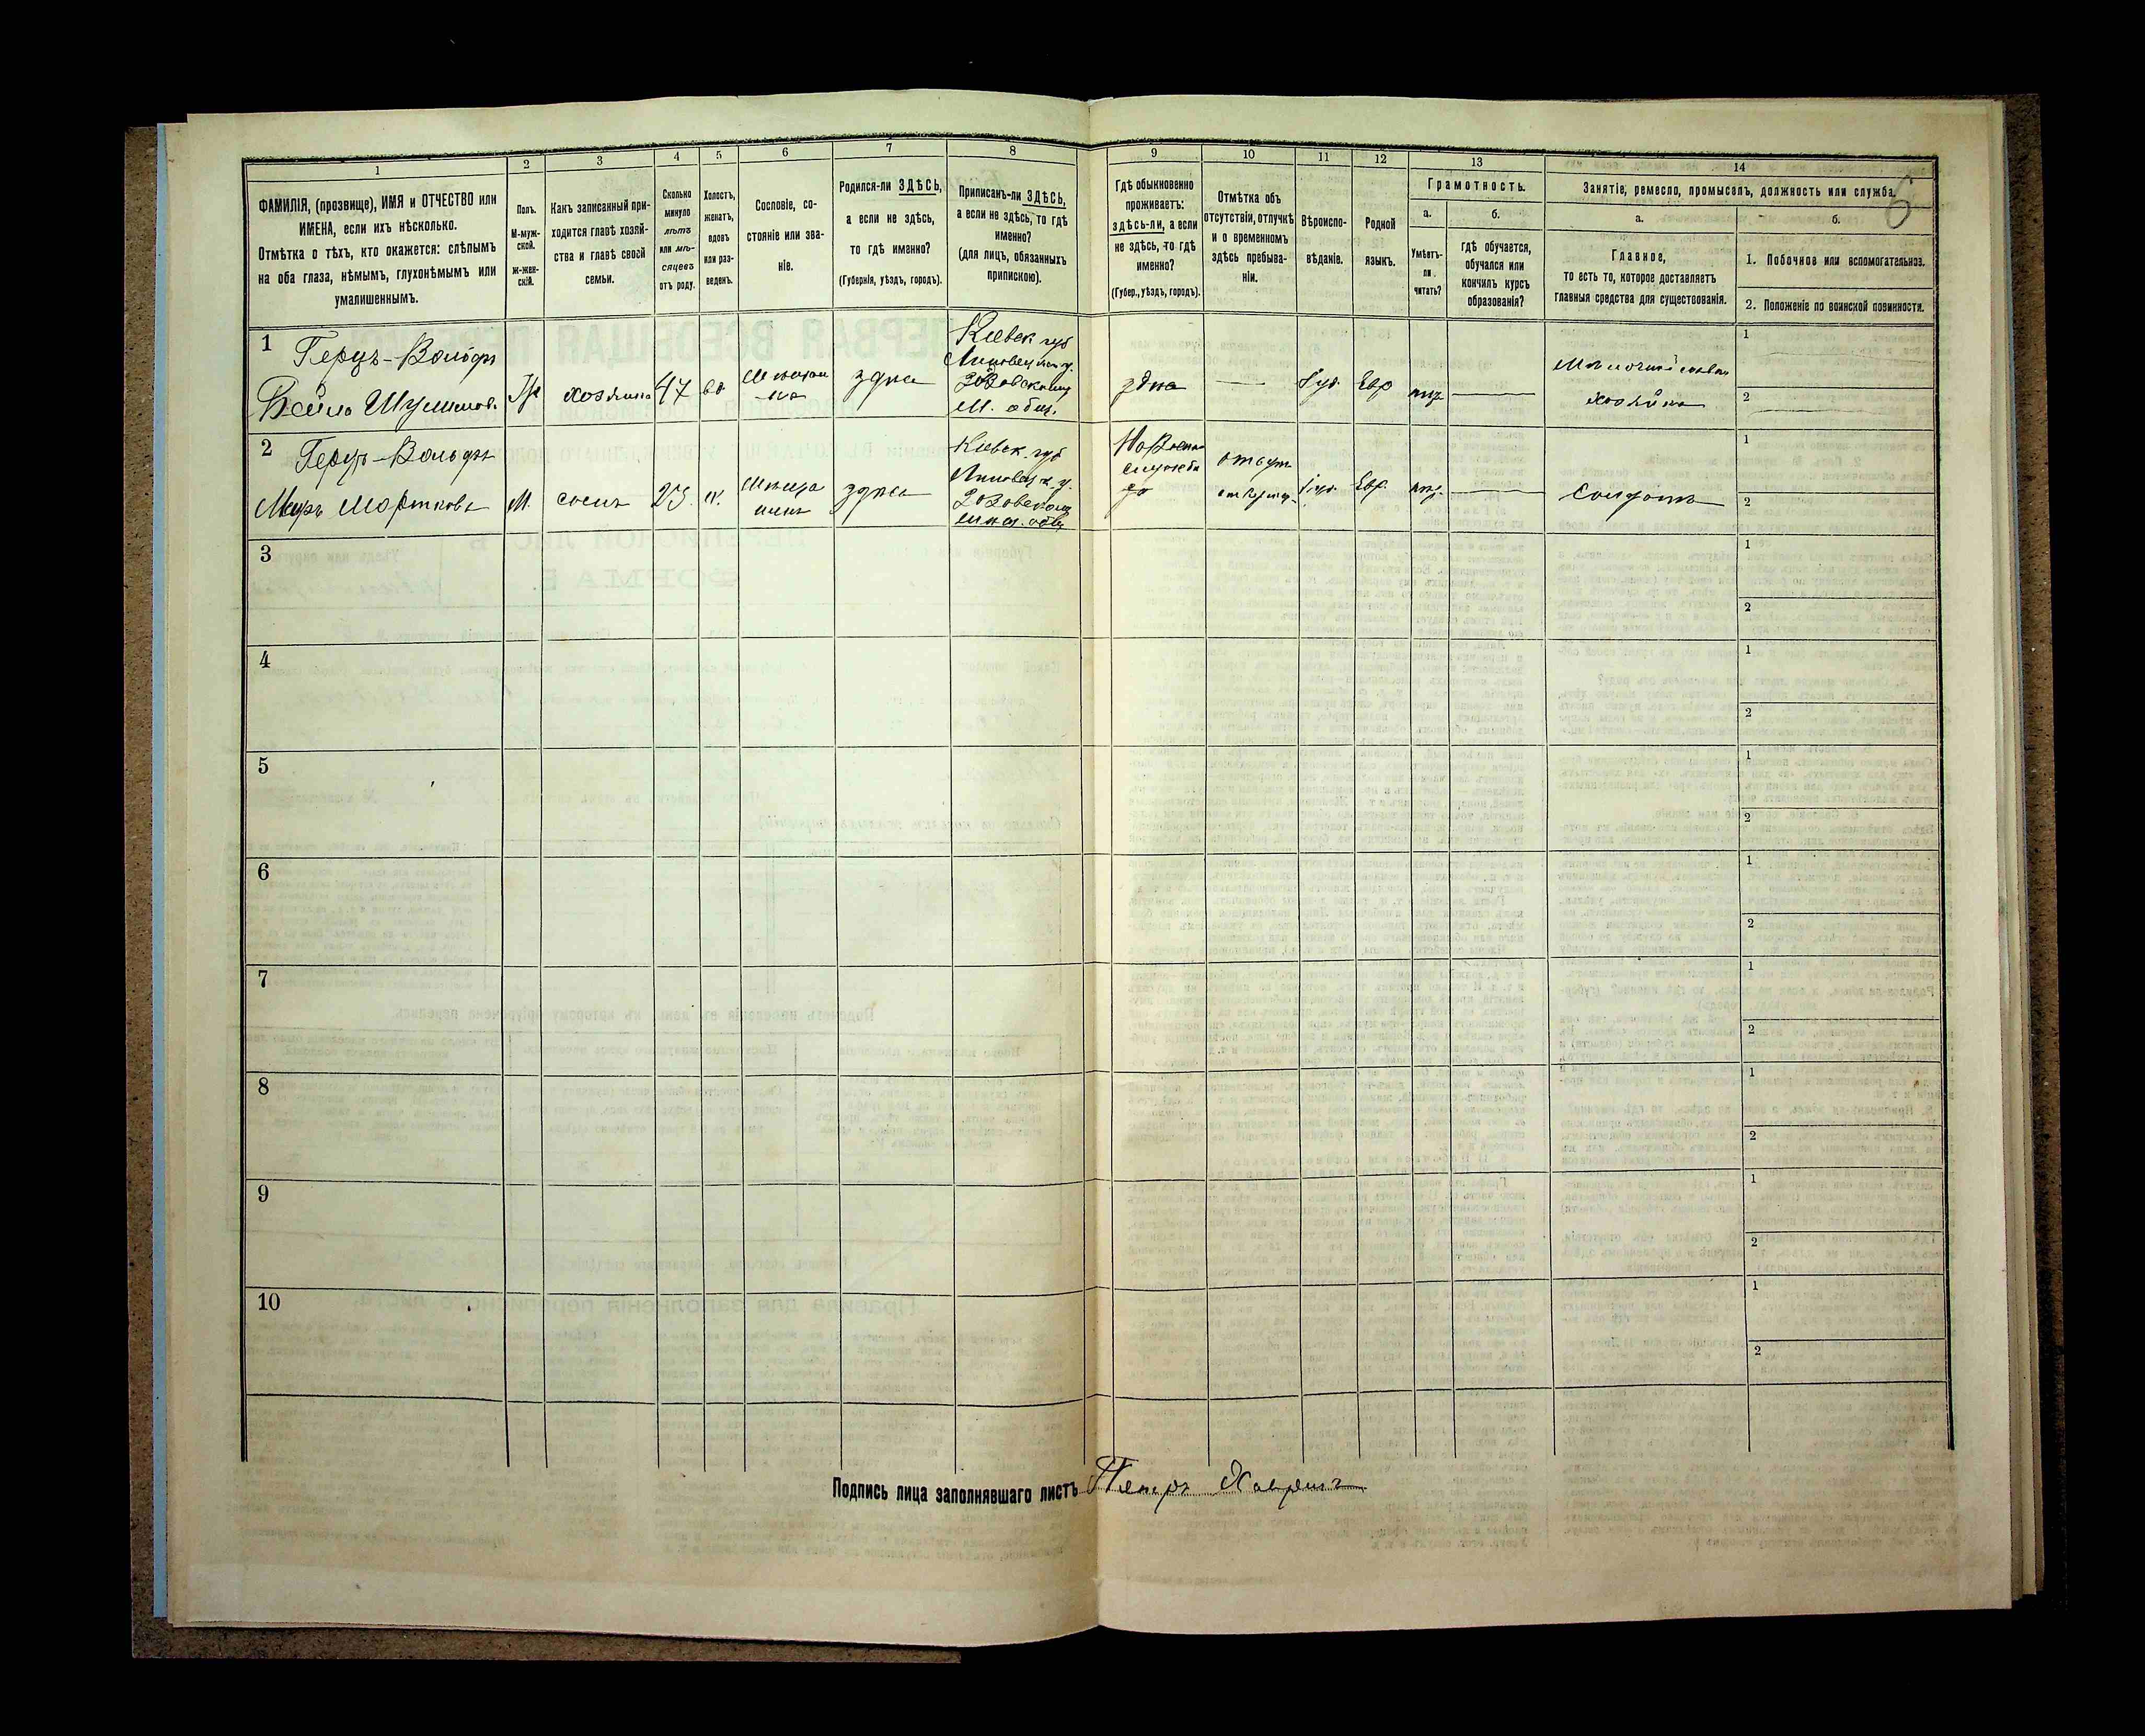 1
2
3
4
5
6
7
8
9
10
11
12
13
14
ФАМИЛІЯ, (прозвище), ИМЯ и ОТЧЕСТВО или
ИМЕНА, если ихъ нѣсколько.
Отмѣтка о тѣхъ, кто окажется: слѣпымъ
на оба глаза, нѣмымъ, глухонѣмымъ или
умалишеннымъ.
Полъ.
М-муж-
ской.
Ж-жен-
скій.
Какъ записанный при-
ходится главѣ хозяй-
ства и главѣ своей
семьи.
Сколько
минуло
лѣтъ
или мѣ-
сяцевъ
отъ роду.
Холостъ,
женатъ,
вдовъ
или раз-
веденъ.
Сословіе, со-
стояніе или зва-
ніе.
Родился-ли ЗДѢСЬ,
а если не здѣсь,
то гдѣ именно?
(Губернія, уѣздъ, городъ).
Приписанъ-ли ЗДѢСЬ,
а если не здѣсь, то гдѣ
именно?
(для лицъ, обязанныхъ
припискою).
Гдѣ обыкновенно
проживаетъ:
здѣсь-ли, а если
не здѣсь, то гдѣ
именно?
(Губер., уѣздъ, городъ).
Отмѣтка объ
отсутствіи, отлучкѣ
и о временномъ
здѣсь пребыва-
ніи.
Вѣроиспо-
вѣданіе.
Родной
языкъ.
Грамотность.
а.
Умѣетъ-
ли
читать?
б.
гдѣ обучается,
обучался или
кончилъ курсъ
образованія?
Занятіе, ремесло, промыселъ, должность или служба.
6
а.
Главное,
то есть то, которое доставляетъ
главныя средства для существованія.
б.
1. Побочное или вспомогательное.
2. Положеніе по воинской повинности.
1
Герцъ-Вольфъ
Бейла Шулимов.
Ж
хозяика
47
вд
здѣсь
Кіевск губ
М. общ.
здѣсь
—
Іуд.
Евр
нѣтъ
—
хозяйка
1
2
2
Герцъ-Вольфъ
Меръ Мортковъ
М.
сынъ
23.
х.
здѣсь
Кіевск. губ
отсут
Іуд.
Евр.
нѣт.
—
солдатъ
1
2
3
1
2
4
1
2
5
1
2
6
1
2
7
1
2
8
1
2
9
1
2
10
1
2
Подпись лица заполнявшаго листъ Петръ